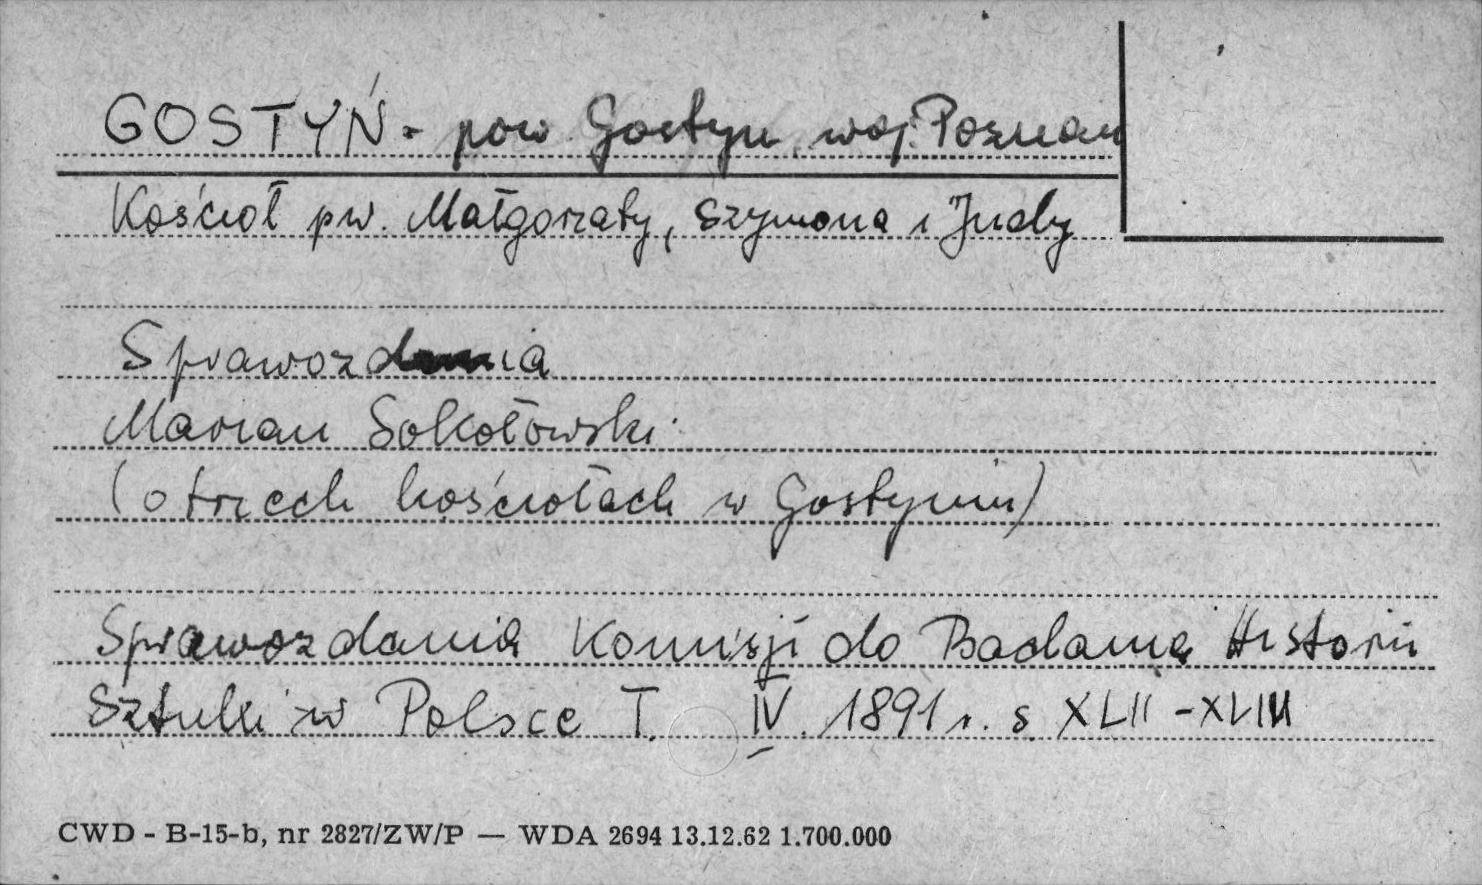 GOSTYŃ - pow Gostyń, woj. Poznań
Kościoł pw. Małgorzaty, Szymona i Judy
Sprawozdania
Marian Sokołowski
(o trzech kościołach w Gostyniu)
Sprawozdania Komisji do Badania Historii
Sztuki w Polsce T. IV. 1891 r. s XLII - XLVIII
CWD - B-15-b, nr 2827/ZW/P — WDA 2694 13.12.62 1.700.000